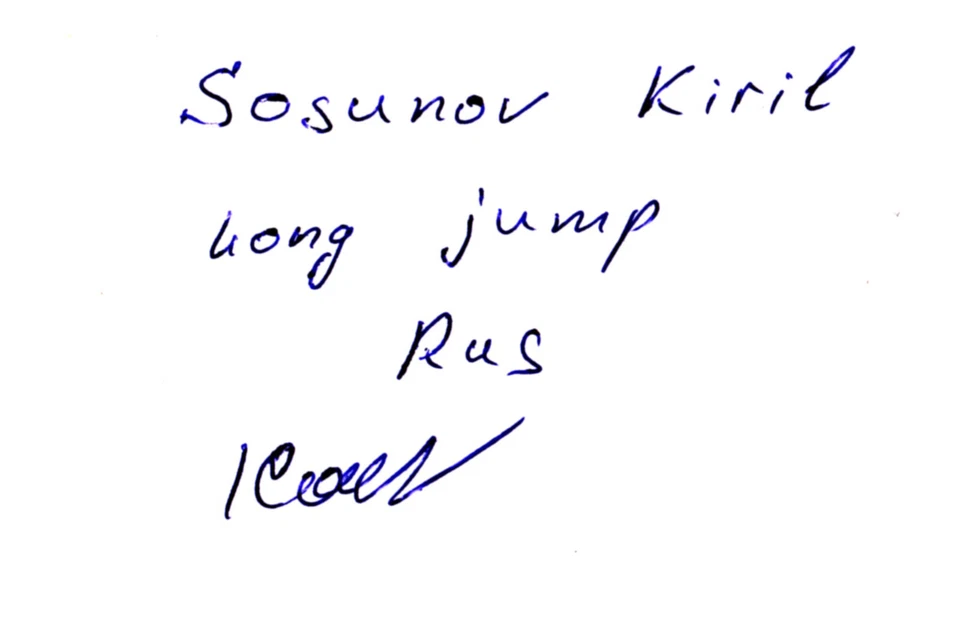 Sosunov Kiril
Long jump
Rus